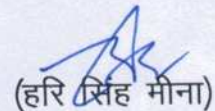 (हरि सिंह मीना)